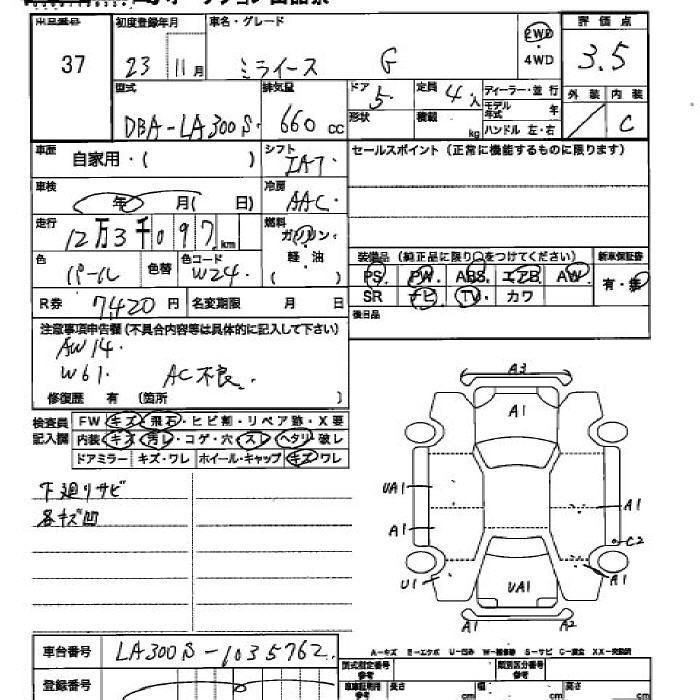 出品番号 初度登録年月 車名・グレード 2WD 評価点
37 23 11月 ミライース G 4WD 3.5
型式 排気量 ドア 5 定員 4人 ディーラー・並行 外装 内装
DBA-LA300S. 660 cc 形状 積載 kg モデル年式 年 C
ハンドル 左・右
車歴 自家用・( ) シフト IAT セールスポイント (正常に機能するものに限ります)
車検 年 月( 日) 冷房 AAC.
走行 12万3千097km 燃料 ガソリン・軽油 ( )
装備品 (純正品に限り○をつけてください) 新車保証書
色 パール 色替 色コード W24. PS PW ABS エアB AW 有・無
SR ナビ TV カワ
R券 7,420円 名変期限 月 日 後日品
注意事項申告欄(不具合内容等は具体的に記入して下さい)
AW14.
W61. AC不良.
修復歴 有 (箇所 )
検査員記入欄 FW キズ・飛石・ヒビ割・リペア跡・X要
内装 キズ・汚レ・コゲ・穴・スレ・ヘタリ・破レ
ドアミラー キズ・ワレ ホイール・キャップ キズ ワレ
下廻りサビ
各キズ凹
A3
A1
UA1
A1
A1
C2
U1
UA1
A1
A1
A2
A-キズ E-エクボ U-凹み W-補修跡 S-サビ C-腐食 XX-交換済
車台番号 LA300S-1035762.
型式指定番号 参考 類別区分番号 参考
登録番号 車庫証明用 参考 長さ cm 幅 cm 高さ cm